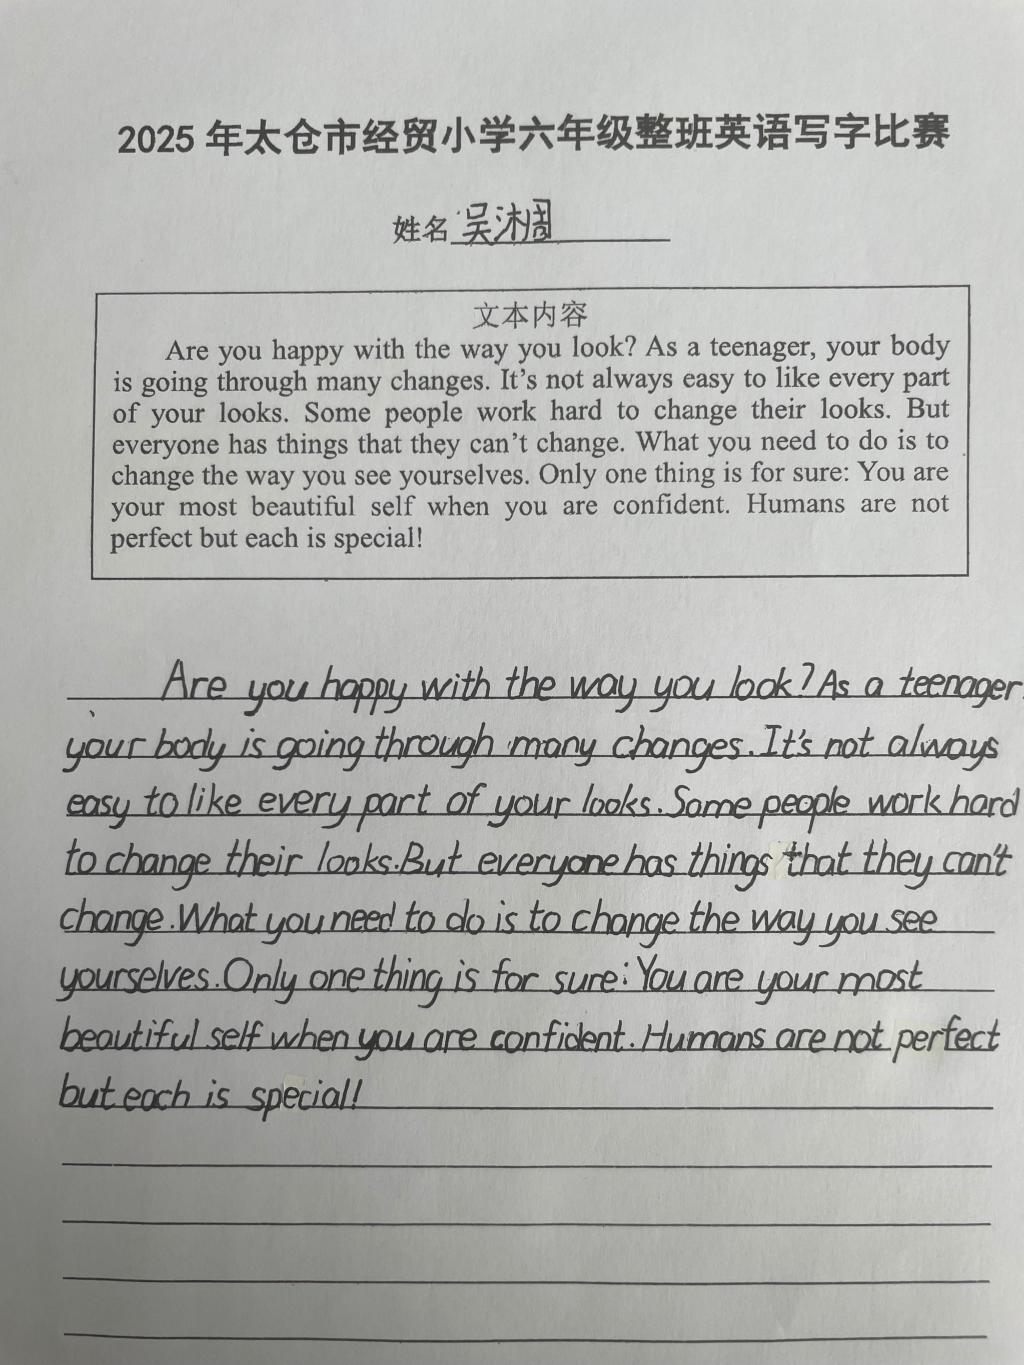 2025 年太仓市经贸小学六年级整班英语写字比赛
姓名 吴沐
文本内容
Are you happy with the way you look? As a teenager, your body
is going through many changes. It's not always easy to like every part
of your looks. Some people work hard to change their looks. But
everyone has things that they can't change. What you need to do is to
change the way you see yourselves. Only one thing is for sure: You are
your most beautiful self when you are confident. Humans are not
perfect but each is special!
Are you happy with the way you look? As a teenager,
your body is going through many changes. It's not always
easy to like every part of your looks. Some people work hard
to change their looks. But everyone has things that they can't
change. What you need to do is to change the way you see
yourselves. Only one thing is for sure: You are your most
beautiful self when you are confident. Humans are not perfect
but each is special!